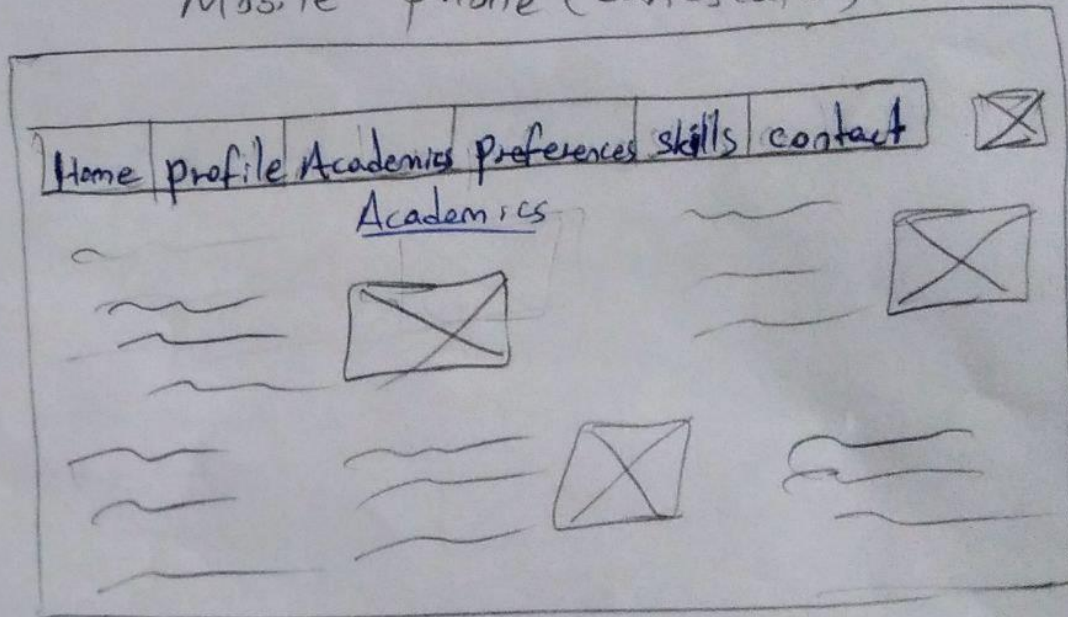 Mobile phone
Home profile Academics preferences skills contact
Academics